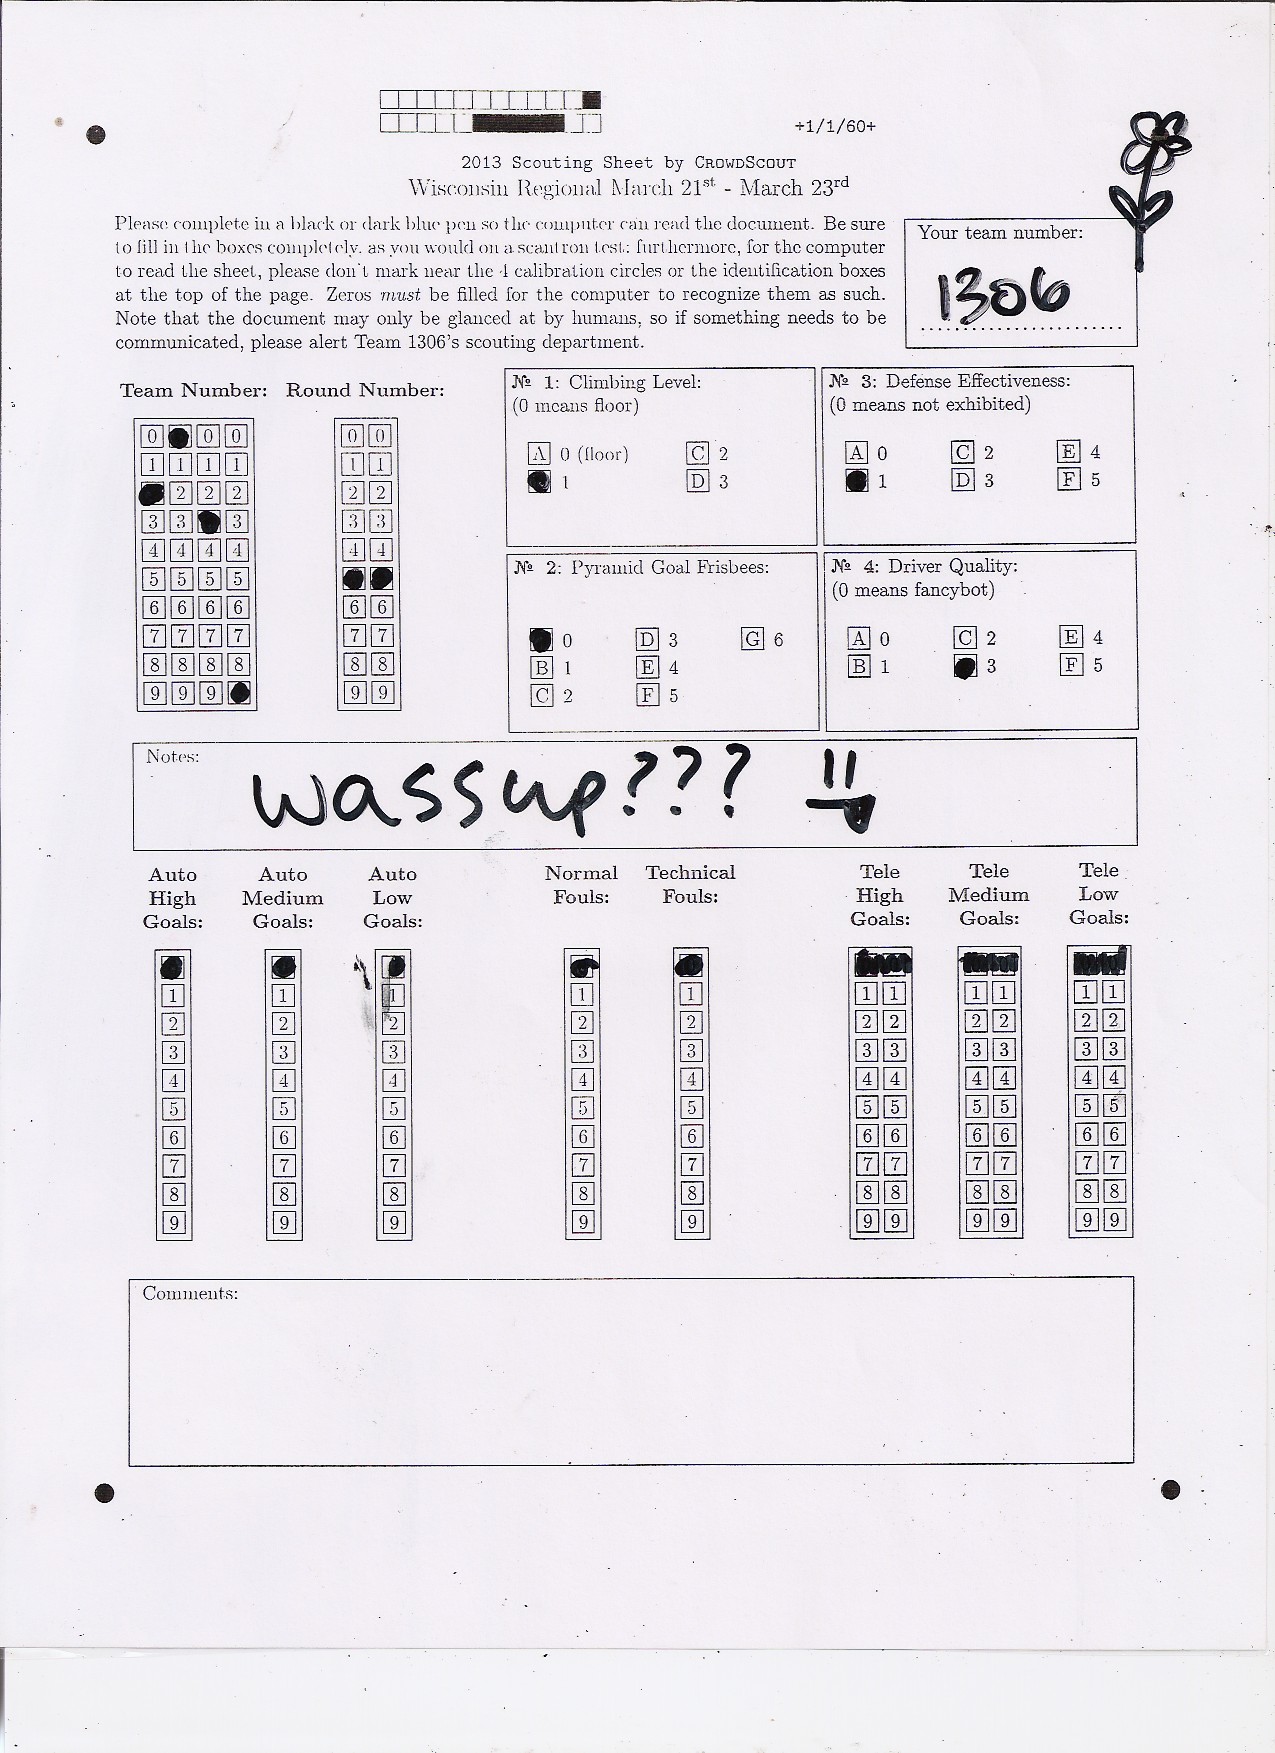 +1/1/60+
2013 Scouting Sheet by CROWDSCOUT
Wisconsin Regional March 21st - March 23rd
Please complete in a black or dark blue pen so the computer can read the document. Be sure
to fill in the boxes completely, as you would on a scantron test; furthermore, for the computer
to read the sheet, please don't mark near the 4 calibration circles or the identification boxes
at the top of the page. Zeros must be filled for the computer to recognize them as such.
Note that the document may only be glanced at by humans, so if something needs to be
communicated, please alert Team 1306's scouting department.
Your team number:
1306
Team Number: Round Number:
0 0 0 0 0
1 1 1 1 1 1
2 2 2 2 2
3 3 3 3 3
4 4 4 4 4 4
5 5 5 5
6 6 6 6 6 6
7 7 7 7 7 7
8 8 8 8 8 8
9 9 9 9 9
№ 1: Climbing Level:
(0 means floor)
A 0 (floor) C 2
1 D 3
№ 3: Defense Effectiveness:
(0 means not exhibited)
A 0 C 2 E 4
1 D 3 F 5
№ 2: Pyramid Goal Frisbees:
0 D 3 G 6
B 1 E 4
C 2 F 5
№ 4: Driver Quality:
(0 means fancybot)
A 0 C 2 E 4
B 1 3 F 5
Notes:
wassup???
Auto High Goals: Auto Medium Goals: Auto Low Goals: Normal Fouls: Technical Fouls: Tele High Goals: Tele Medium Goals: Tele Low Goals:
1 1 1 1 1 1 1 1 1 1 1
2 2 2 2 2 2 2 2 2 2 2
3 3 3 3 3 3 3 3 3 3 3
4 4 4 4 4 4 4 4 4 4 4
5 5 5 5 5 5 5 5 5 5 5
6 6 6 6 6 6 6 6 6 6 6
7 7 7 7 7 7 7 7 7 7 7
8 8 8 8 8 8 8 8 8 8 8
9 9 9 9 9 9 9 9 9 9 9
Comments: